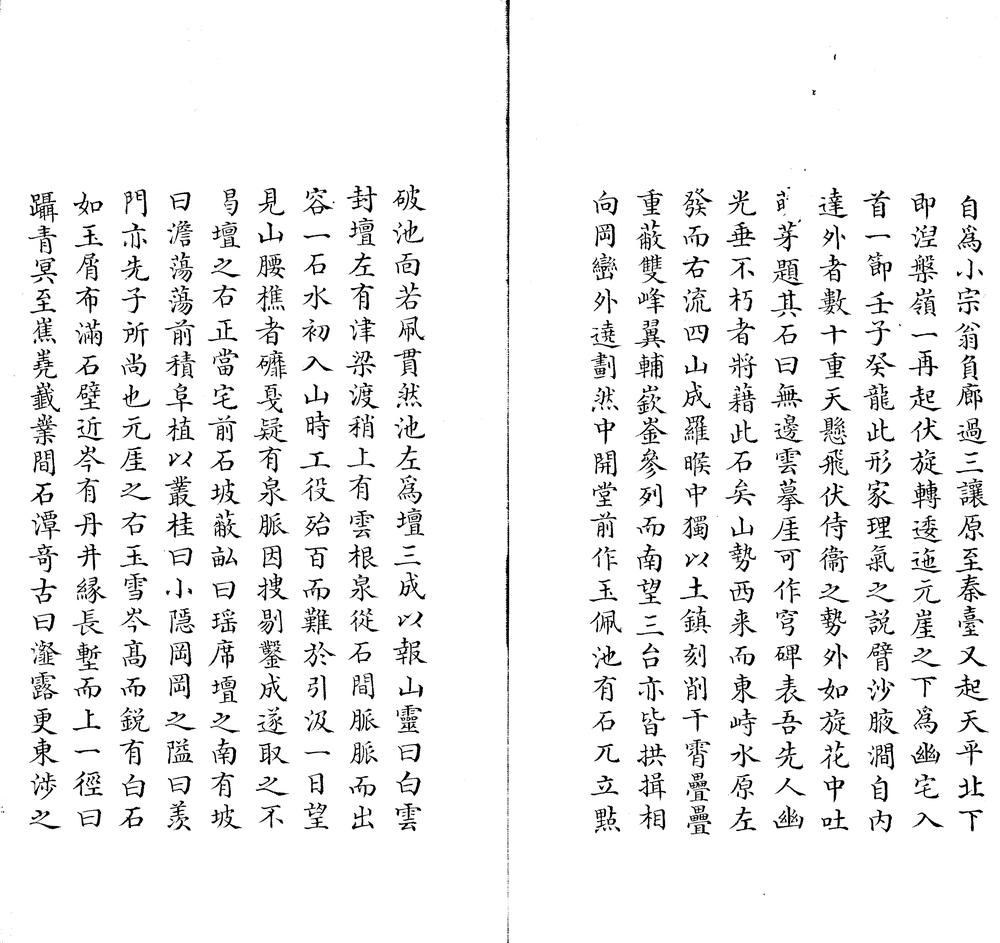 自爲小宗翁負廊過三讓原至秦臺又起天平北下
即湼槃嶺一再起伏旋轉逶迤元崖之下爲幽宅入
首一節壬子癸龍此形家理氣之説臂沙腋澗自内
達外者數十重天懸飛伏侍衞之勢外如旋花中吐
芽題其石曰無邊雲摹厓可作穹碑表吾先人幽
光垂不朽者將藉此石矣山勢西来而東峙水原左
發而右流四山成羅睺中獨以土鎮刻削干霄疊疊
重蔽雙峰翼輔嶔崟參列而南望三台亦皆拱揖相
向岡巒外遶劃然中開堂前作玉佩池有石兀立點
破池面若凧貫然池左爲壇三成以報山靈曰白雲
封壇左有津梁渡稍上有雲根泉從石間脈脈而出
容一石水初入山時工役殆百而難於引汲一日望
見山腰樵者礲戛疑有泉脈因捜剔鑿成遂取之不
曷壇之右正當宅前石坡蔽畆曰瑶席壇之南有坡
曰澹蕩蕩前積阜植以叢桂曰小隱岡岡之隘曰羨
門亦先子所尚也元厓之右玉雪岑髙而鋭有白石
如玉屑布滿石壁近岑有丹井緣長塹而上一徑曰
躡青冥至嶣嶤嶻嶪間石潭奇古曰瀣露更東涉之